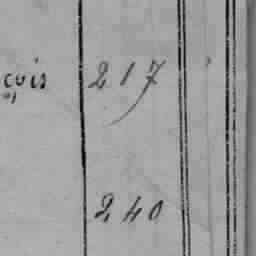 çois 217
240